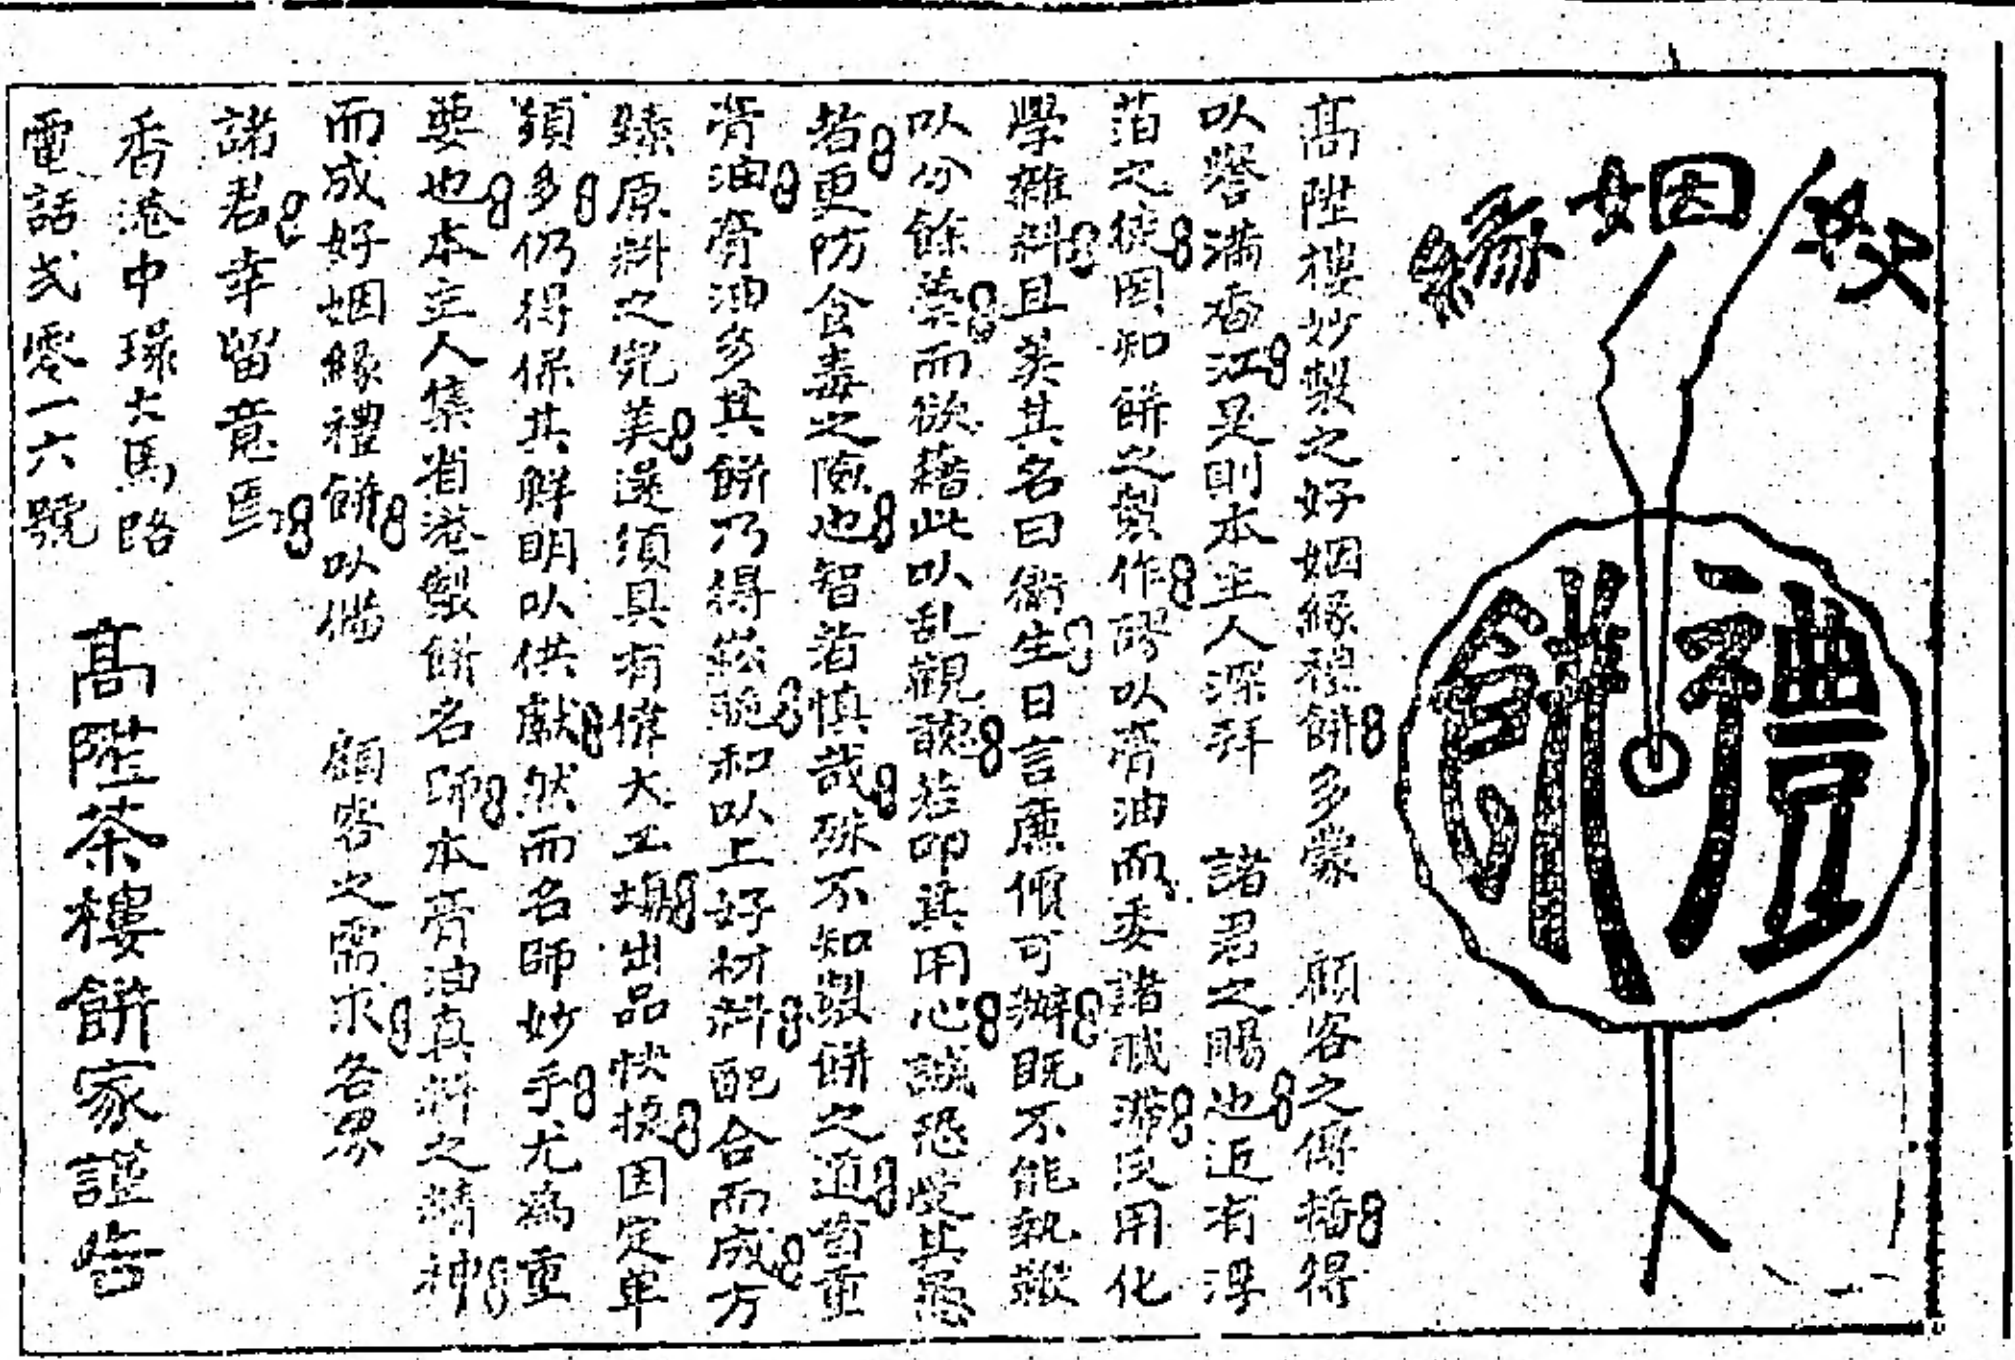 好姻緣
禮餅
高陞樓妙製之好姻緣禮餅多蒙 顧客之傳播得
以譽滿香江是則本主人深拜 諸君之賜也近有浮
萡之徒因知餅之製作膠以膏油而委諸戝滯民用化
學雜料且美其名曰衛生日言廉價可辦既不能執
以分餘羹而欲藉此以乱觀聽若叩其用心誠恐受其愚
者更防食毒之險也智者慎哉殊不知製餅之道首重
膏油膏油多其餅乃得鬆脆和以上好材料配合而成方
臻原料之完美還須具有偉大工塲出品快捷因定单
類多仍得保其鮮明以供獻然而名師妙手尤為重
要也本主人集省港製餅名師本膏油真料之精神
而成好姻緣禮餅以備 顧客之需求各界
諸君幸留意焉
香港中環大馬路
電話弍零一六號
高陞茶樓餅家謹告